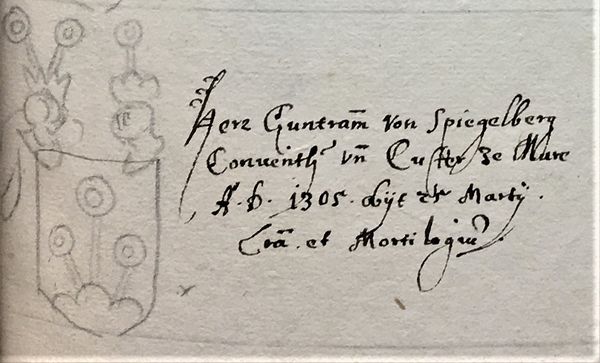 Herz Guntram̄ von Spiegelberg
Conventl. vn̄ Custer ze Mure
A.º D. 1305. obijt Martij.
et Mortilogiū